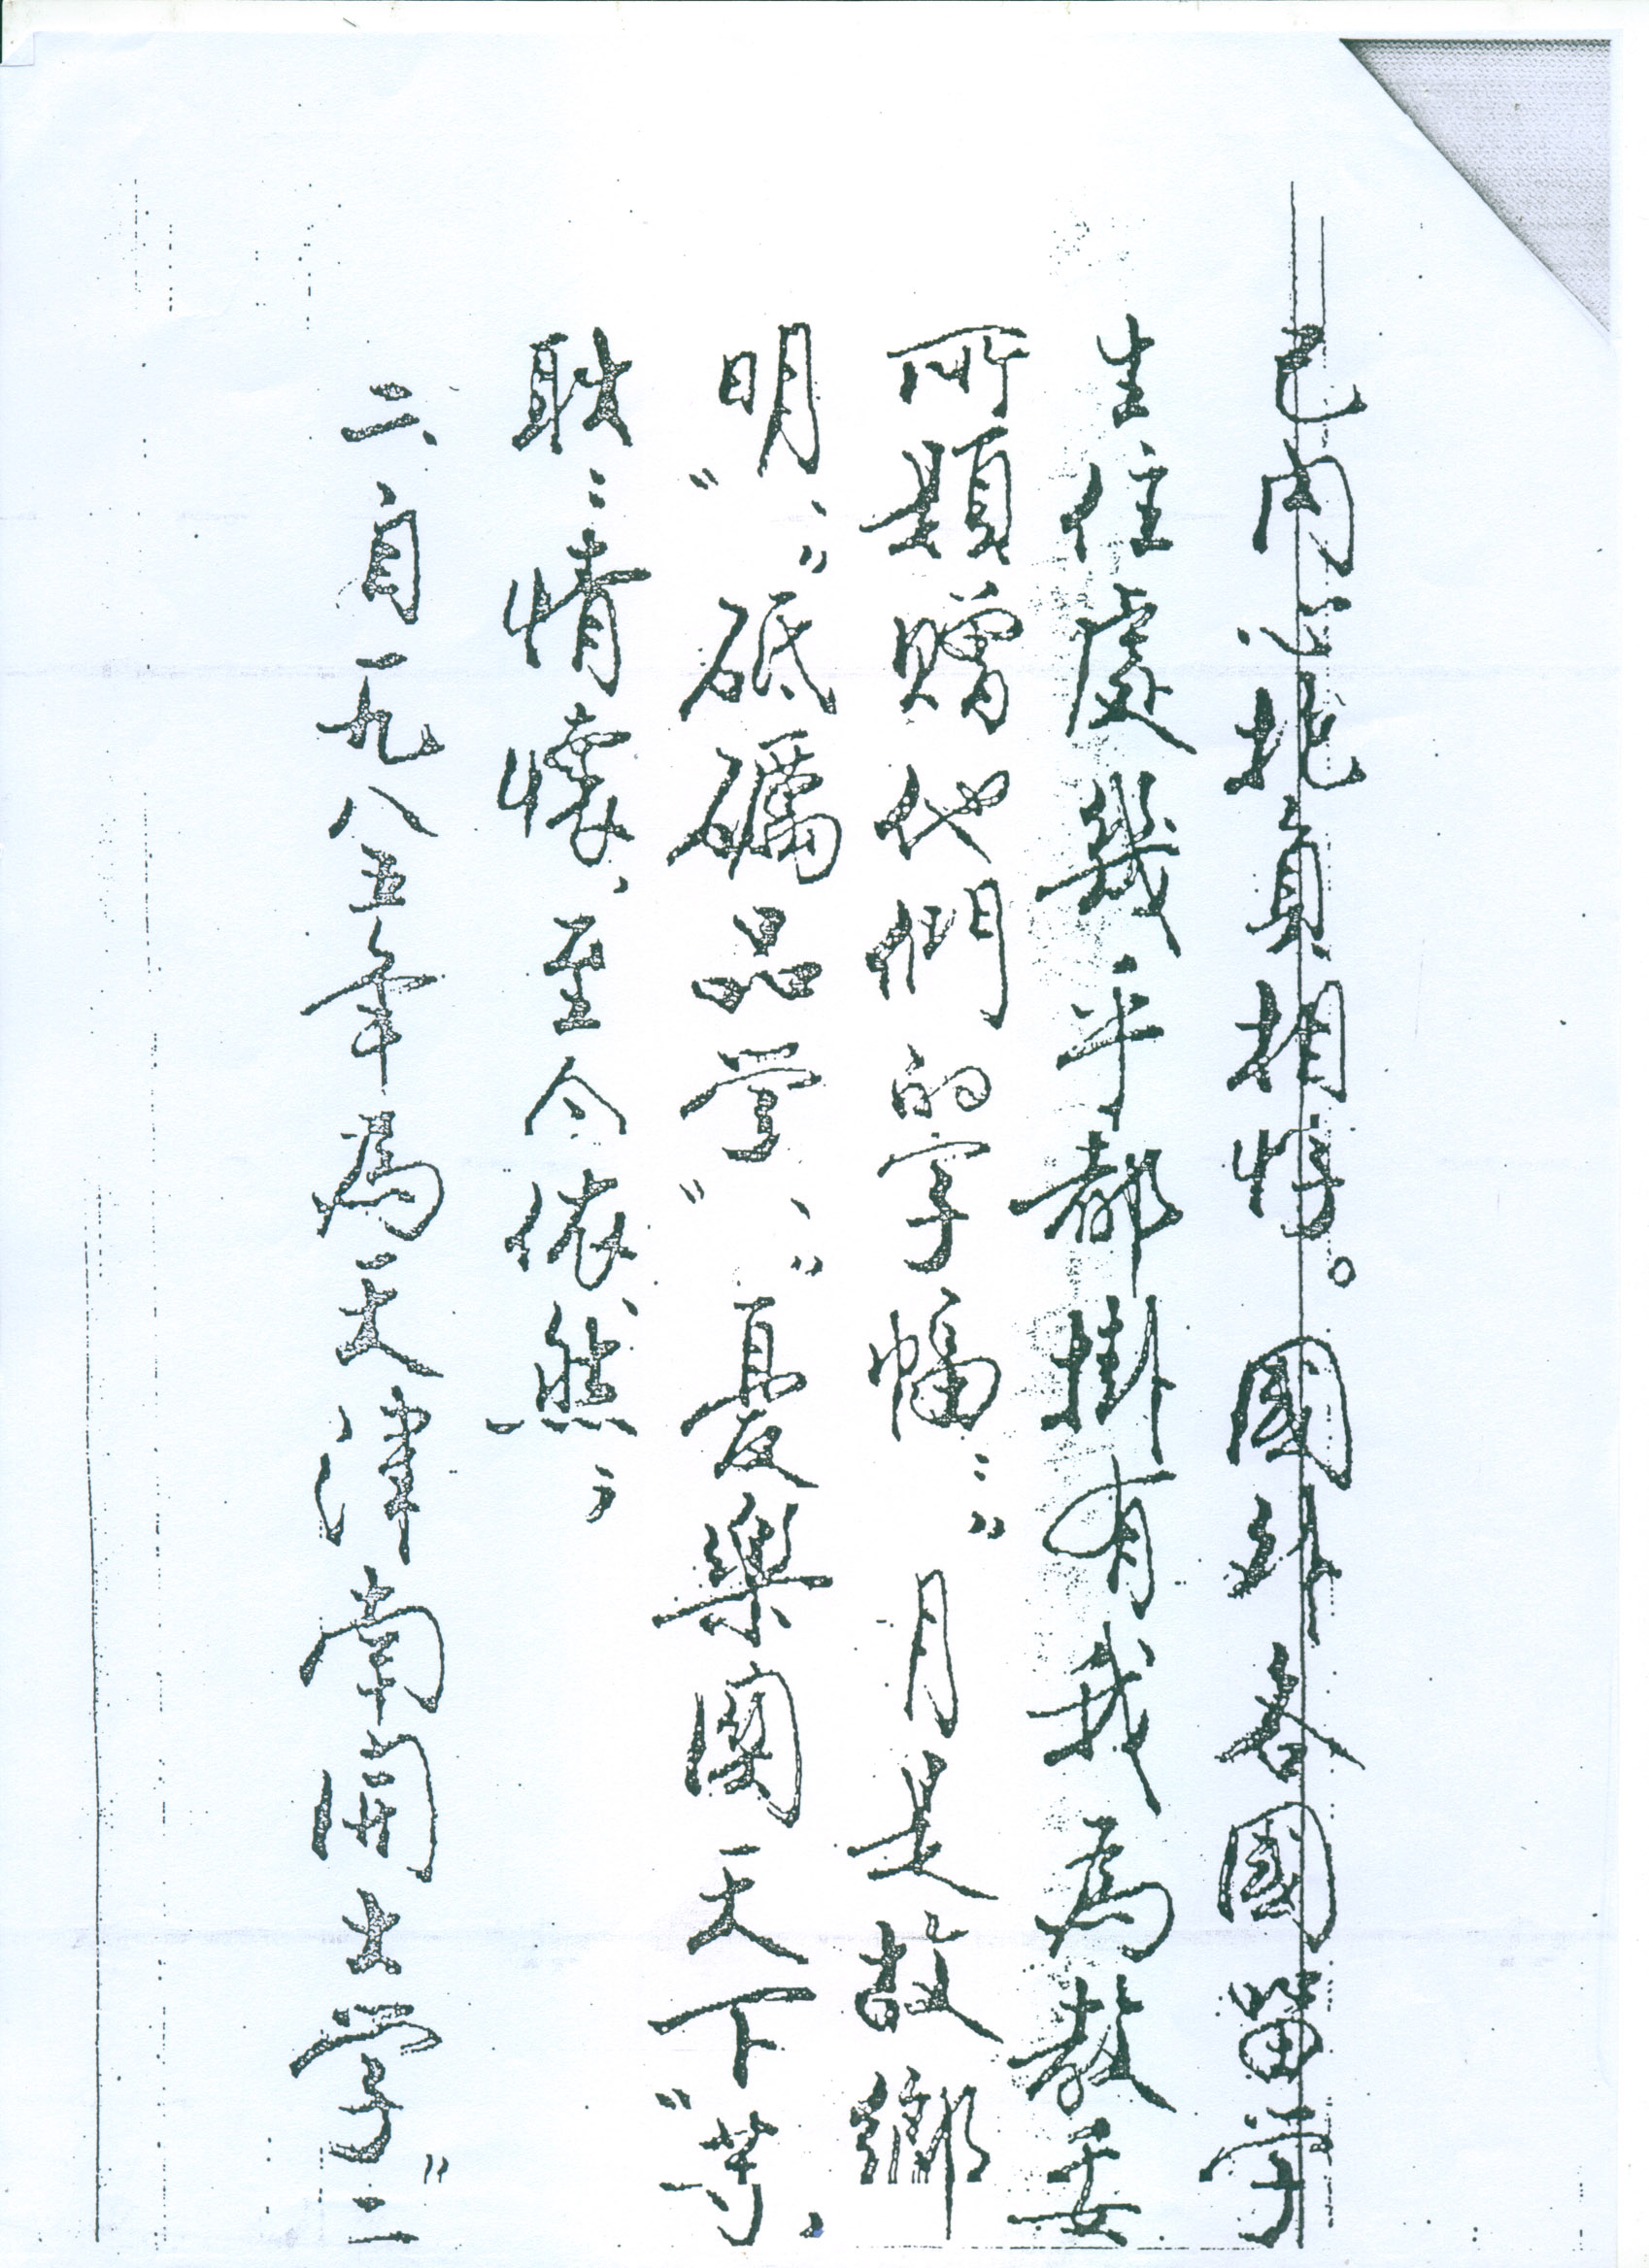 己内心抱負相悖。國外各國留学
生住處幾乎都掛有我為教委
所題贈他們的字幅："月是故鄉
明"、"砥礪品学"、"憂樂園天下"等、
耿：情懷、至今依然，
二、自一九八五年為天津南開大学"二